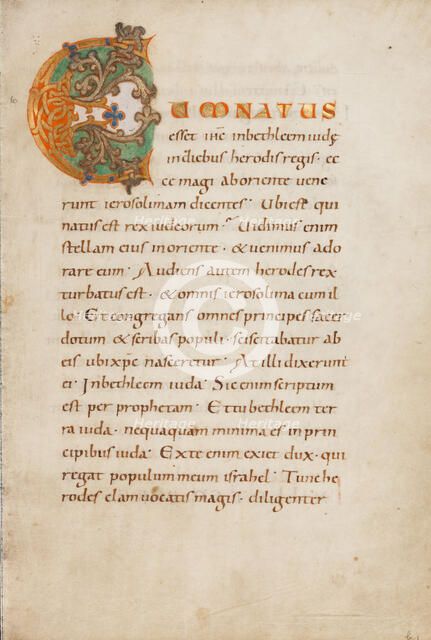 CUM NATUS
esset ihc inbethleem iudę
indiebus herodis regis · ec
ce magi aboriente vene
runt ierosolimam dicentes · Ubi est qui
natus est rex iudeorum · Uidimus enim
stellam eius inoriente · & uenimus ado
rare eum · Audiens autem herodes rex
turbatus est · & omnis ierosolima cum il
lo · Et congregans omnes principes sacer
dotum & scribas populi · sciscitabatur ab
eis ubi xpc nasceretur · At illi dixerunt
ei · Inbethleem iuda · Sic enim scriptum
est per prophetam · Et tu bethleem ter
ra iuda · nequaquam minima es in prin
cipibus iuda · Ex te enim exiet dux · qui
regat populum meum israhel · Tunc he
rodes clam uocatis magis · diligenter
Heritage
Heritage
Heritage
Heritage
Heritage
Heritage